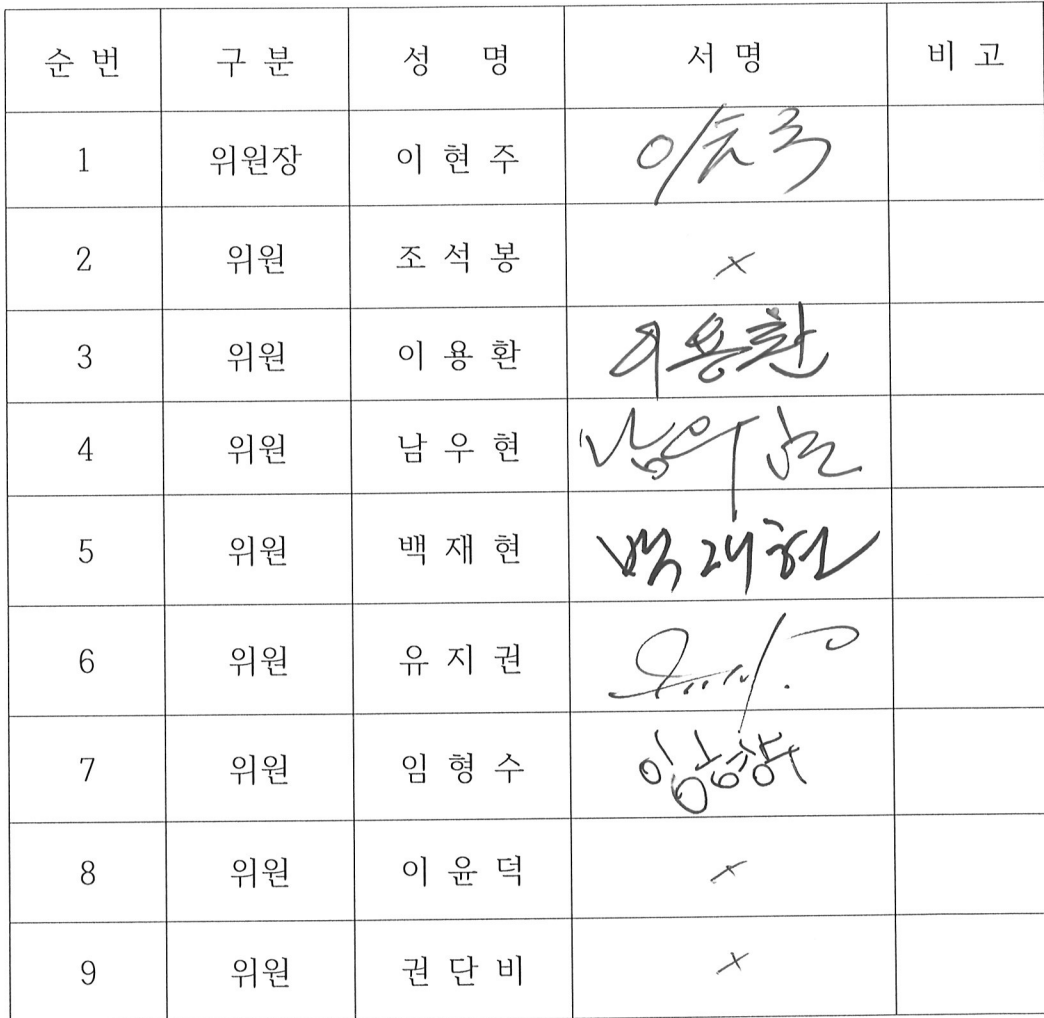 순 번 구 분 성 명 서 명 비 고
1 위원장 이 현 주
2 위원 조 석 봉 ×
3 위원 이 용 환 이용환
4 위원 남 우 현 남우현
5 위원 백 재 현 백재현
6 위원 유 지 권
7 위원 임 형 수 임형수
8 위원 이 윤 덕 ×
9 위원 권 단 비 ×